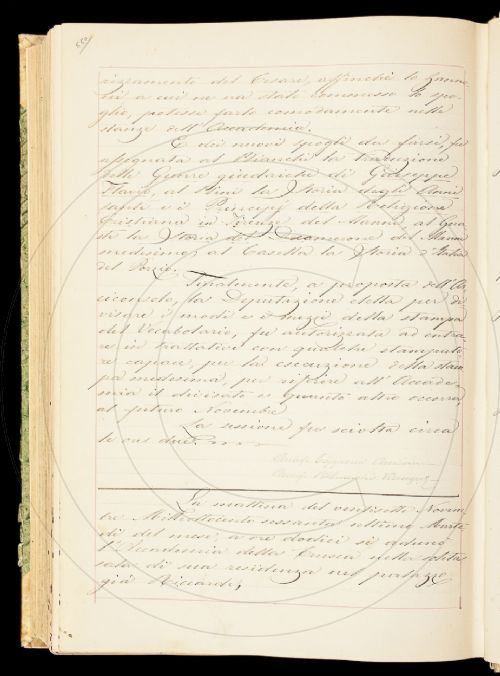 del Cesare, affinchè lo
a cui ne era stato commesso lo spo-
glio, potesse farlo comodamente nelle
stanze dell'Accademia.
E dei nuovi spogli da farsi, fu
assegnata al Bianchi la traduzione
delle Guerre giudaiche di Giuseppe
Flavio, al Bini la Storia degli
e i Principj della Religione
Cristiana in Firenze del Manni, al
la Storia del Decamerone del Manni
medesimo, al Casella la Storia d'Italia
del Porzio.
Finalmente, a proposta dell'Ar-
ciconsolo, la Deputazione eletta per di-
visare i modi e i mezzi della stampa
del Vocabolario, fu autorizzata ad entra-
re in trattative con qualche stampato-
re capace, per la esecuzione della stam-
pa medesima, per riferire all'Accade-
mia il divisato e quanto altro occorra
al futuro Novembre.
La sessione fu sciolta circa
le ore due.
La mattina del Novem-
bre Milleottocento sessanta Marte-
dì del mese, a ore dodici si adunò
l'Accademia della Crusca nella solita
sala di sua residenza nel palazzo
già Riccardi,